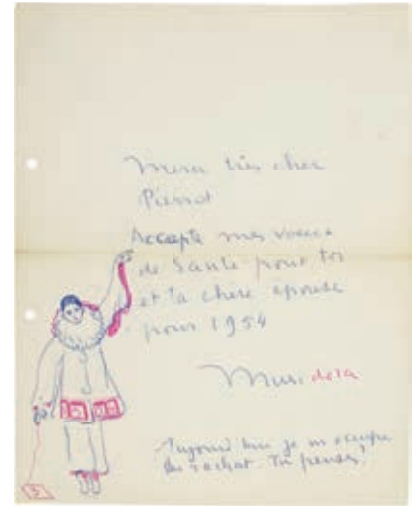 Mon très cher
Pierrot
Accepte mes voeux
de Santé pour toi
et ta chère épouse
pour 1954
Musidora
Aujourd'hui je m'occupe
du rachat. Tu penses!